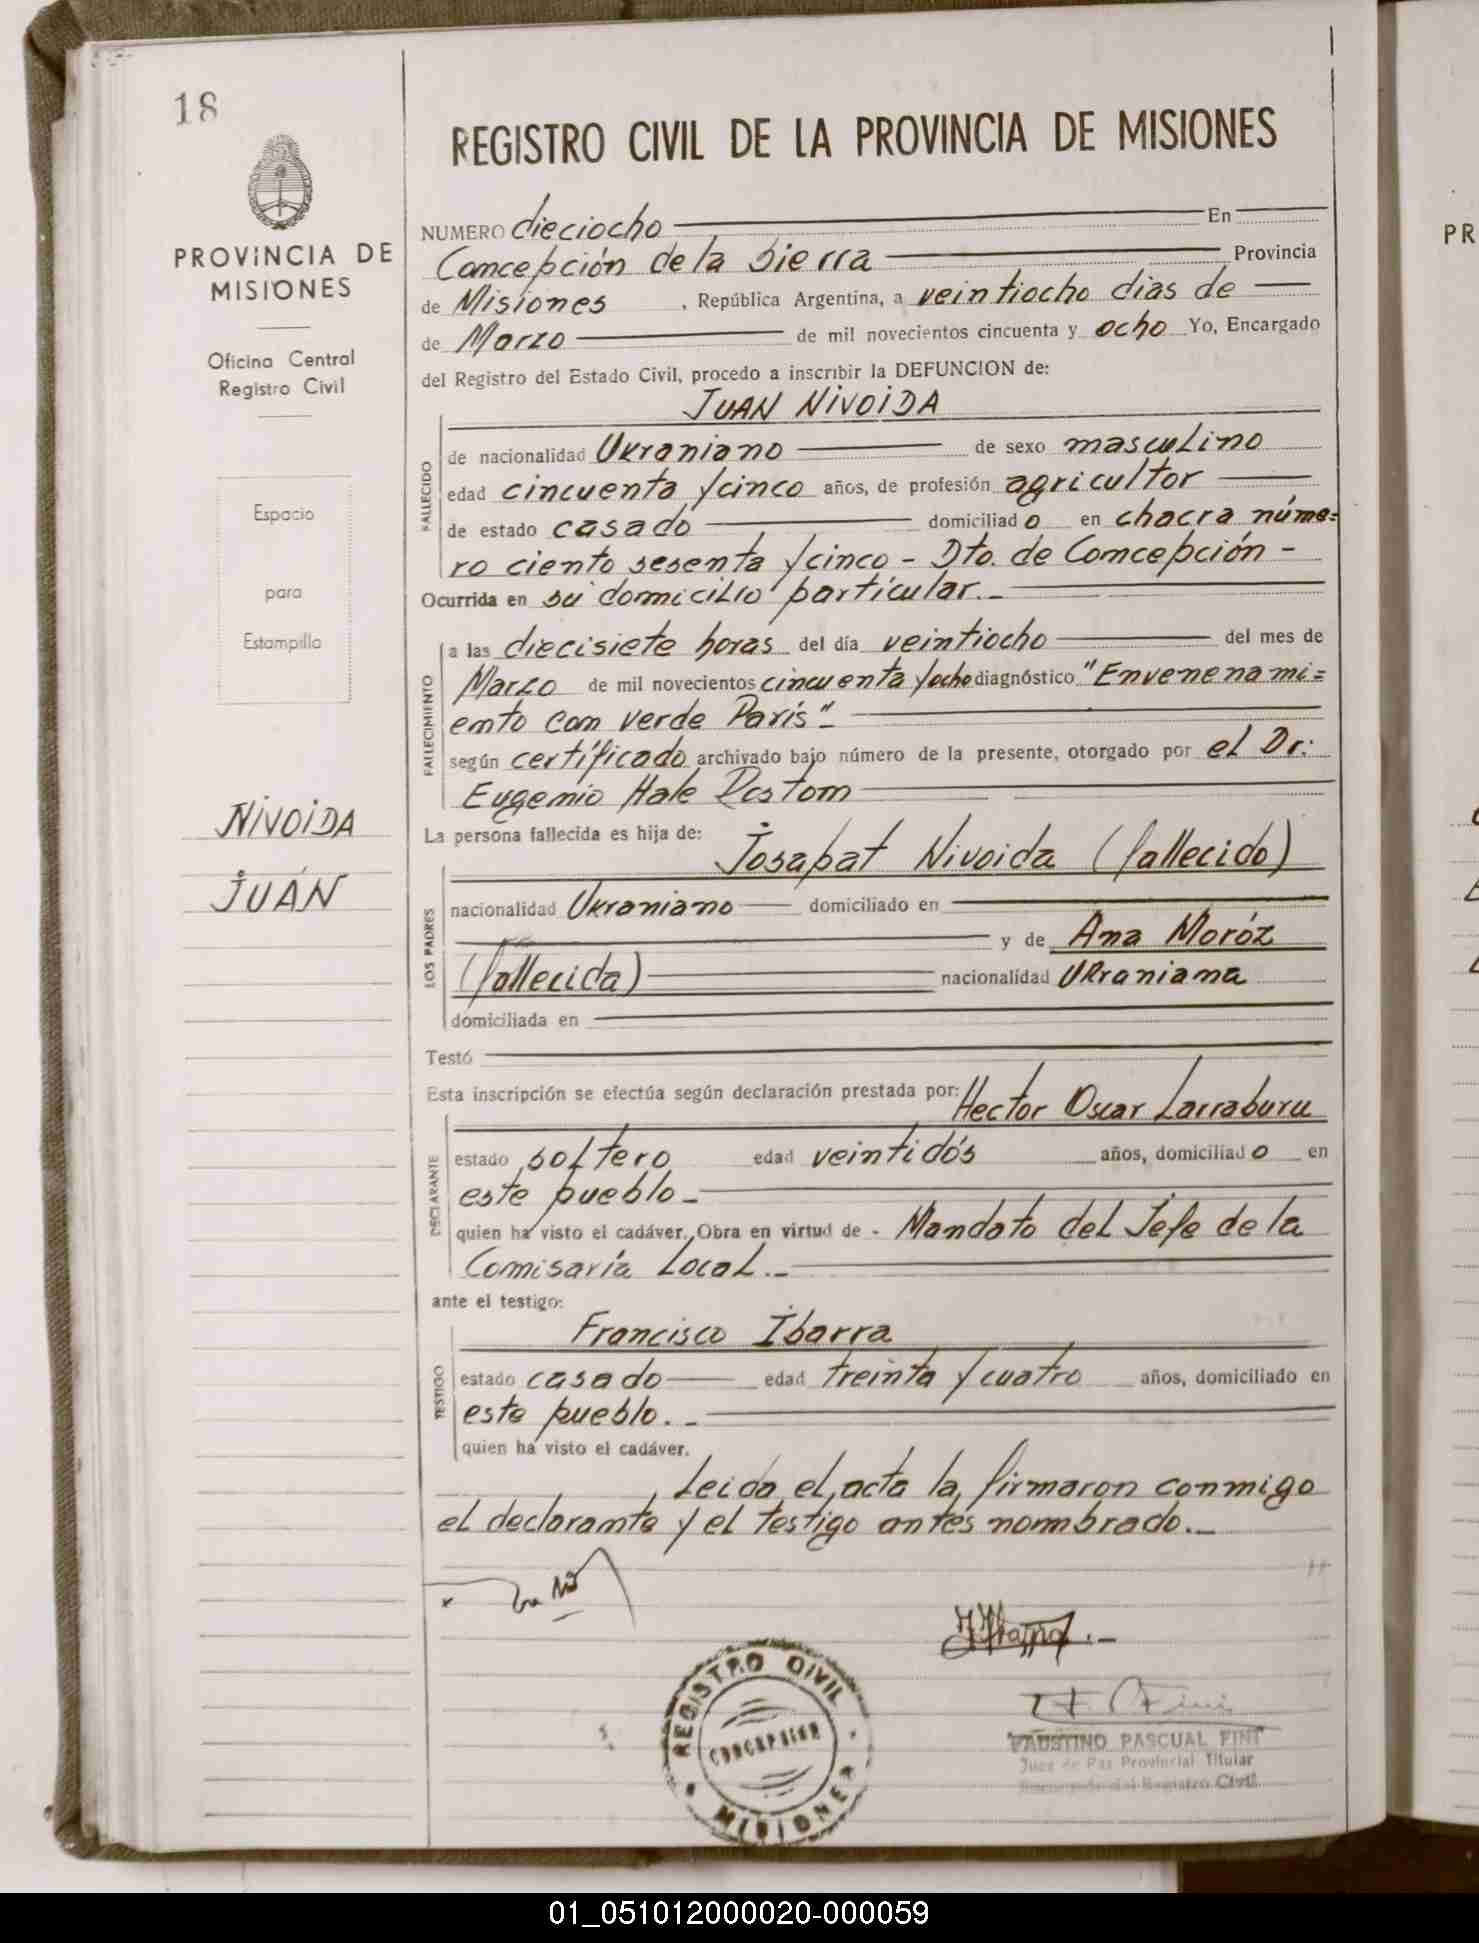 18
PROVINCIA DE
MISIONES
Oficina Central
Registro Civil
Espacio
para
Estampilla
NIVOIDA
JUAN
REGISTRO CIVIL DE LA PROVINCIA DE MISIONES
NUMERO dieciocho En
Concepción de la Sierra Provincia
de Misiones , República Argentina, a veintiocho dias de
de Marzo de mil novecientos cincuenta y ocho Yo, Encargado
del Registro del Estado Civil, procedo a inscribir la DEFUNCION de:
JUAN NIVOIDA
FALLECIDO
de nacionalidad Ukraniano de sexo masculino
edad cincuenta y cinco años, de profesión agricultor
de estado casado domiciliado en chacra núme=
ro ciento sesenta y cinco - Dto. de Concepción -
Ocurrida en su domicilio particular.-
FALLECIMIENTO
a las diecisiete horas del día veintiocho del mes de
Marzo de mil novecientos cincuenta y ocho diagnóstico "Envenenami=
ento con verde Paris"-
según certificado archivado bajo número de la presente, otorgado por el Dr:
Eugenio Hale
La persona fallecida es hija de:
Josapat Nivoida (fallecido)
LOS PADRES
nacionalidad Ukraniano domiciliado en
y de Ana Moróz
(fallecida) nacionalidad Ukraniana
domiciliada en
Testó
Esta inscripción se efectúa según declaración prestada por: Hector Oscar Larraburu
DECLARANTE
estado soltero edad veintidós años, domiciliado en
este pueblo-
quien ha visto el cadáver. Obra en virtud de - Mandato del Jefe de la
Comisaría Local.-
ante el testigo:
Francisco Ibarra
TESTIGO
estado casado edad treinta y cuatro años, domiciliado en
este pueblo.-
quien ha visto el cadáver.
Leida el acta la firmaron conmigo
el declarante y el testigo antes nombrado.-
REGISTRO CIVIL
CONCEPCION
MISIONES
FAUSTINO PASCUAL FINI
Juez de Paz Provincial Titular
Encargado del Registro Civil
PR
01_051012000020-000059